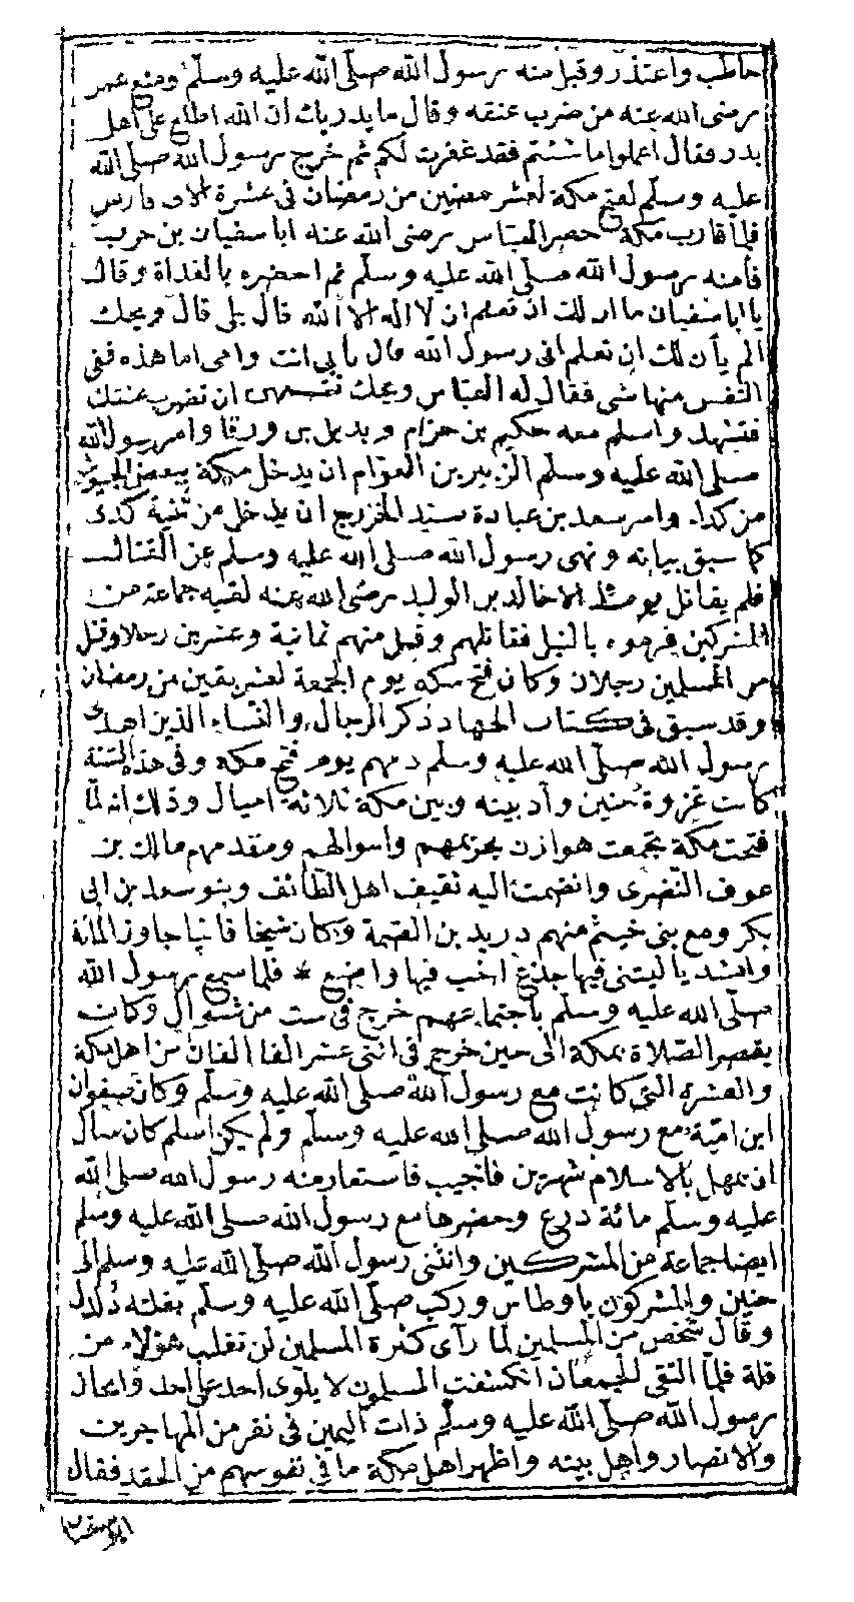 حاطب واعتذر وقبل منه رسول الله صلى الله عليه وسلم ومنع عمر
رضى الله عنه من ضرب عنقه وقال ما يدريك ان الله اطلع على اهل
بدر وقال اعملوا ما شئتم فقد غفرت لكم ثم خرج رسول الله صلى الله
عليه وسلم لفتح مكة لعشر مضين من رمضان فى عشرة الاف فارس
فلما قارب مكة حضر العباس رضى الله عنه ابا سفيان بن حرب
فامنه رسول الله صلى الله عليه وسلم ثم احضره بالغداة وقال
يا ابا سفيان ما ان لك ان تعلم ان لا اله الا الله قال بلى قال ويحك
الم يأن لك ان تعلم انى رسول الله قال بابى انت وامى اما هذه ففى
النفس منها شى فقال له العباس ويحك تشهد ان تضرب عنقك
فتشهد واسلم معه حكيم بن حزام وبديل بن ورقا وامر رسول الله
صلى الله عليه وسلم الزبير بن العوام ان يدخل مكة ببعض الجيوش
من كداء وامر سعد بن عبادة سيد الخزرج ان يدخل من ثنية كدى
كما سبق بيانه ونهى رسول الله صلى الله عليه وسلم عن القتال
فلم يقاتل يومئذ الا خالد بن الوليد رضى الله عنه لقيه جماعة من
المشركين فرموه بالنبل فقاتلهم وقتل منهم ثمانية وعشرين رجلا وقتل
من المسلمين رجلان وكان فتح مكة يوم الجمعة لعشر بقين من رمضان
وقد سبق فى كتاب الجهاد ذكر الرجال والنساء الذين اهدى
رسول الله صلى الله عليه وسلم دمهم يوم فتح مكة وفى هذه السنة
كانت غزوة حنين واد بينه وبين مكة ثلاثة اميال وذلك انه لما
فتحت مكة تجمعت هوازن بحريمهم واموالهم ومقدمهم مالك بن
عوف النضرى وانضمت اليه ثقيف اهل الطائف وبنو سعد بن ابى
بكر ومع بنى خيثم منهم دريد بن الصمة وكان شيخا فانيا جاوز المائة
وانشد يا ليتنى فيها جذع اخب فيها واضع * فلما سمع رسول الله
صلى الله عليه وسلم باجتماعهم خرج فى ست من شوال وكان
يقصر الصلاة بمكة الى حين خرج فى اثنى عشر الفا الفان من اهل مكة
والعشرة التى كانت مع رسول الله صلى الله عليه وسلم وكان صفوان
ابن امية مع رسول الله صلى الله عليه وسلم ولم يكن اسلم كان سأل
ان يمهل بالاسلام شهرين فاجيب فاستعار منه رسول الله صلى الله
عليه وسلم مائة درع وحضرها مع رسول الله صلى الله عليه وسلم
ايضا جماعة من المشركين وانثنى رسول الله صلى الله عليه وسلم الى
حنين والمشركون باوطاس وركب صلى الله عليه وسلم بغلته دلدل
وقال شخص من المسلمين لما رأى كثرة المسلمين لن تغلب هؤلاء من
قلة فلما التقى الجمعان انكشفت المسلمون لا يلوى احد على احد وانحاز
رسول الله صلى الله عليه وسلم ذات اليمين فى نفر من المهاجرين
والانصار واهل بيته واظهر اهل مكة ما فى نفوسهم من الحقد فقال
ابو سفيان